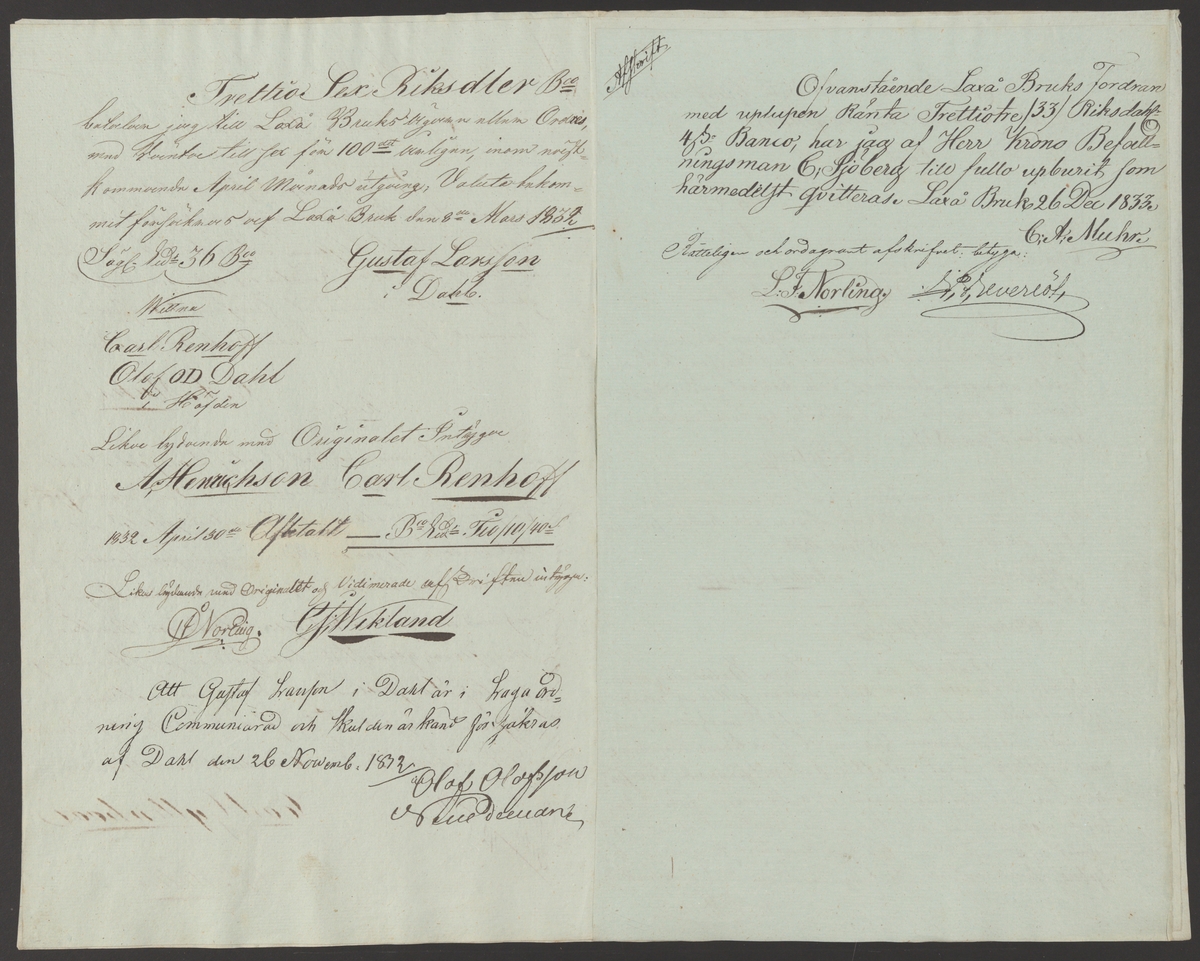 Trettio Sex Riksdler Bco
betalar jag till Laxå Bruks Ägaren eller Ordres,
med Ränta till sex för 100det årligen, inom näst-
kommande April Månads utgång, Valuta bekom-
mit försäkras af Laxå Bruk den 8de Mars 1832
Säg 36 Bco Gustaf Larsson
i Dahl.
Wittna
Carl Renhoff
Olof OD Dahl
i
Lika lydande med Originalet Intyga
A. Henrichson Carl Renhoff
1832 April 30de Afbetalt — Bco Rd Tio /10/
Lika lydande med Originalet och Vidimerade afskriften intyga:
Norling. Wikland
Att Gustaf Larsson i Dahl är i Laga ord-
ning Communicerad och skulden ärkand försäkras
af Dahl den 26 Novemb. 1832
Olof Olofsson
Nämdeman
Afskrift
Ofvanstående Laxå Bruks Fordran
med uplupen Ränta Trettiotre /33/ Riksdahl
4 ß Banco, har jag af Herr Krono Befall-
ningsman C. Sjöberg till fullo upburit som
härmedelst qvitteras. Laxå Bruk 26 Dec 1833.
C: A: Muhr.
Rätteligen och ordagrant afskrifvet betyga:
L. F. Norling.